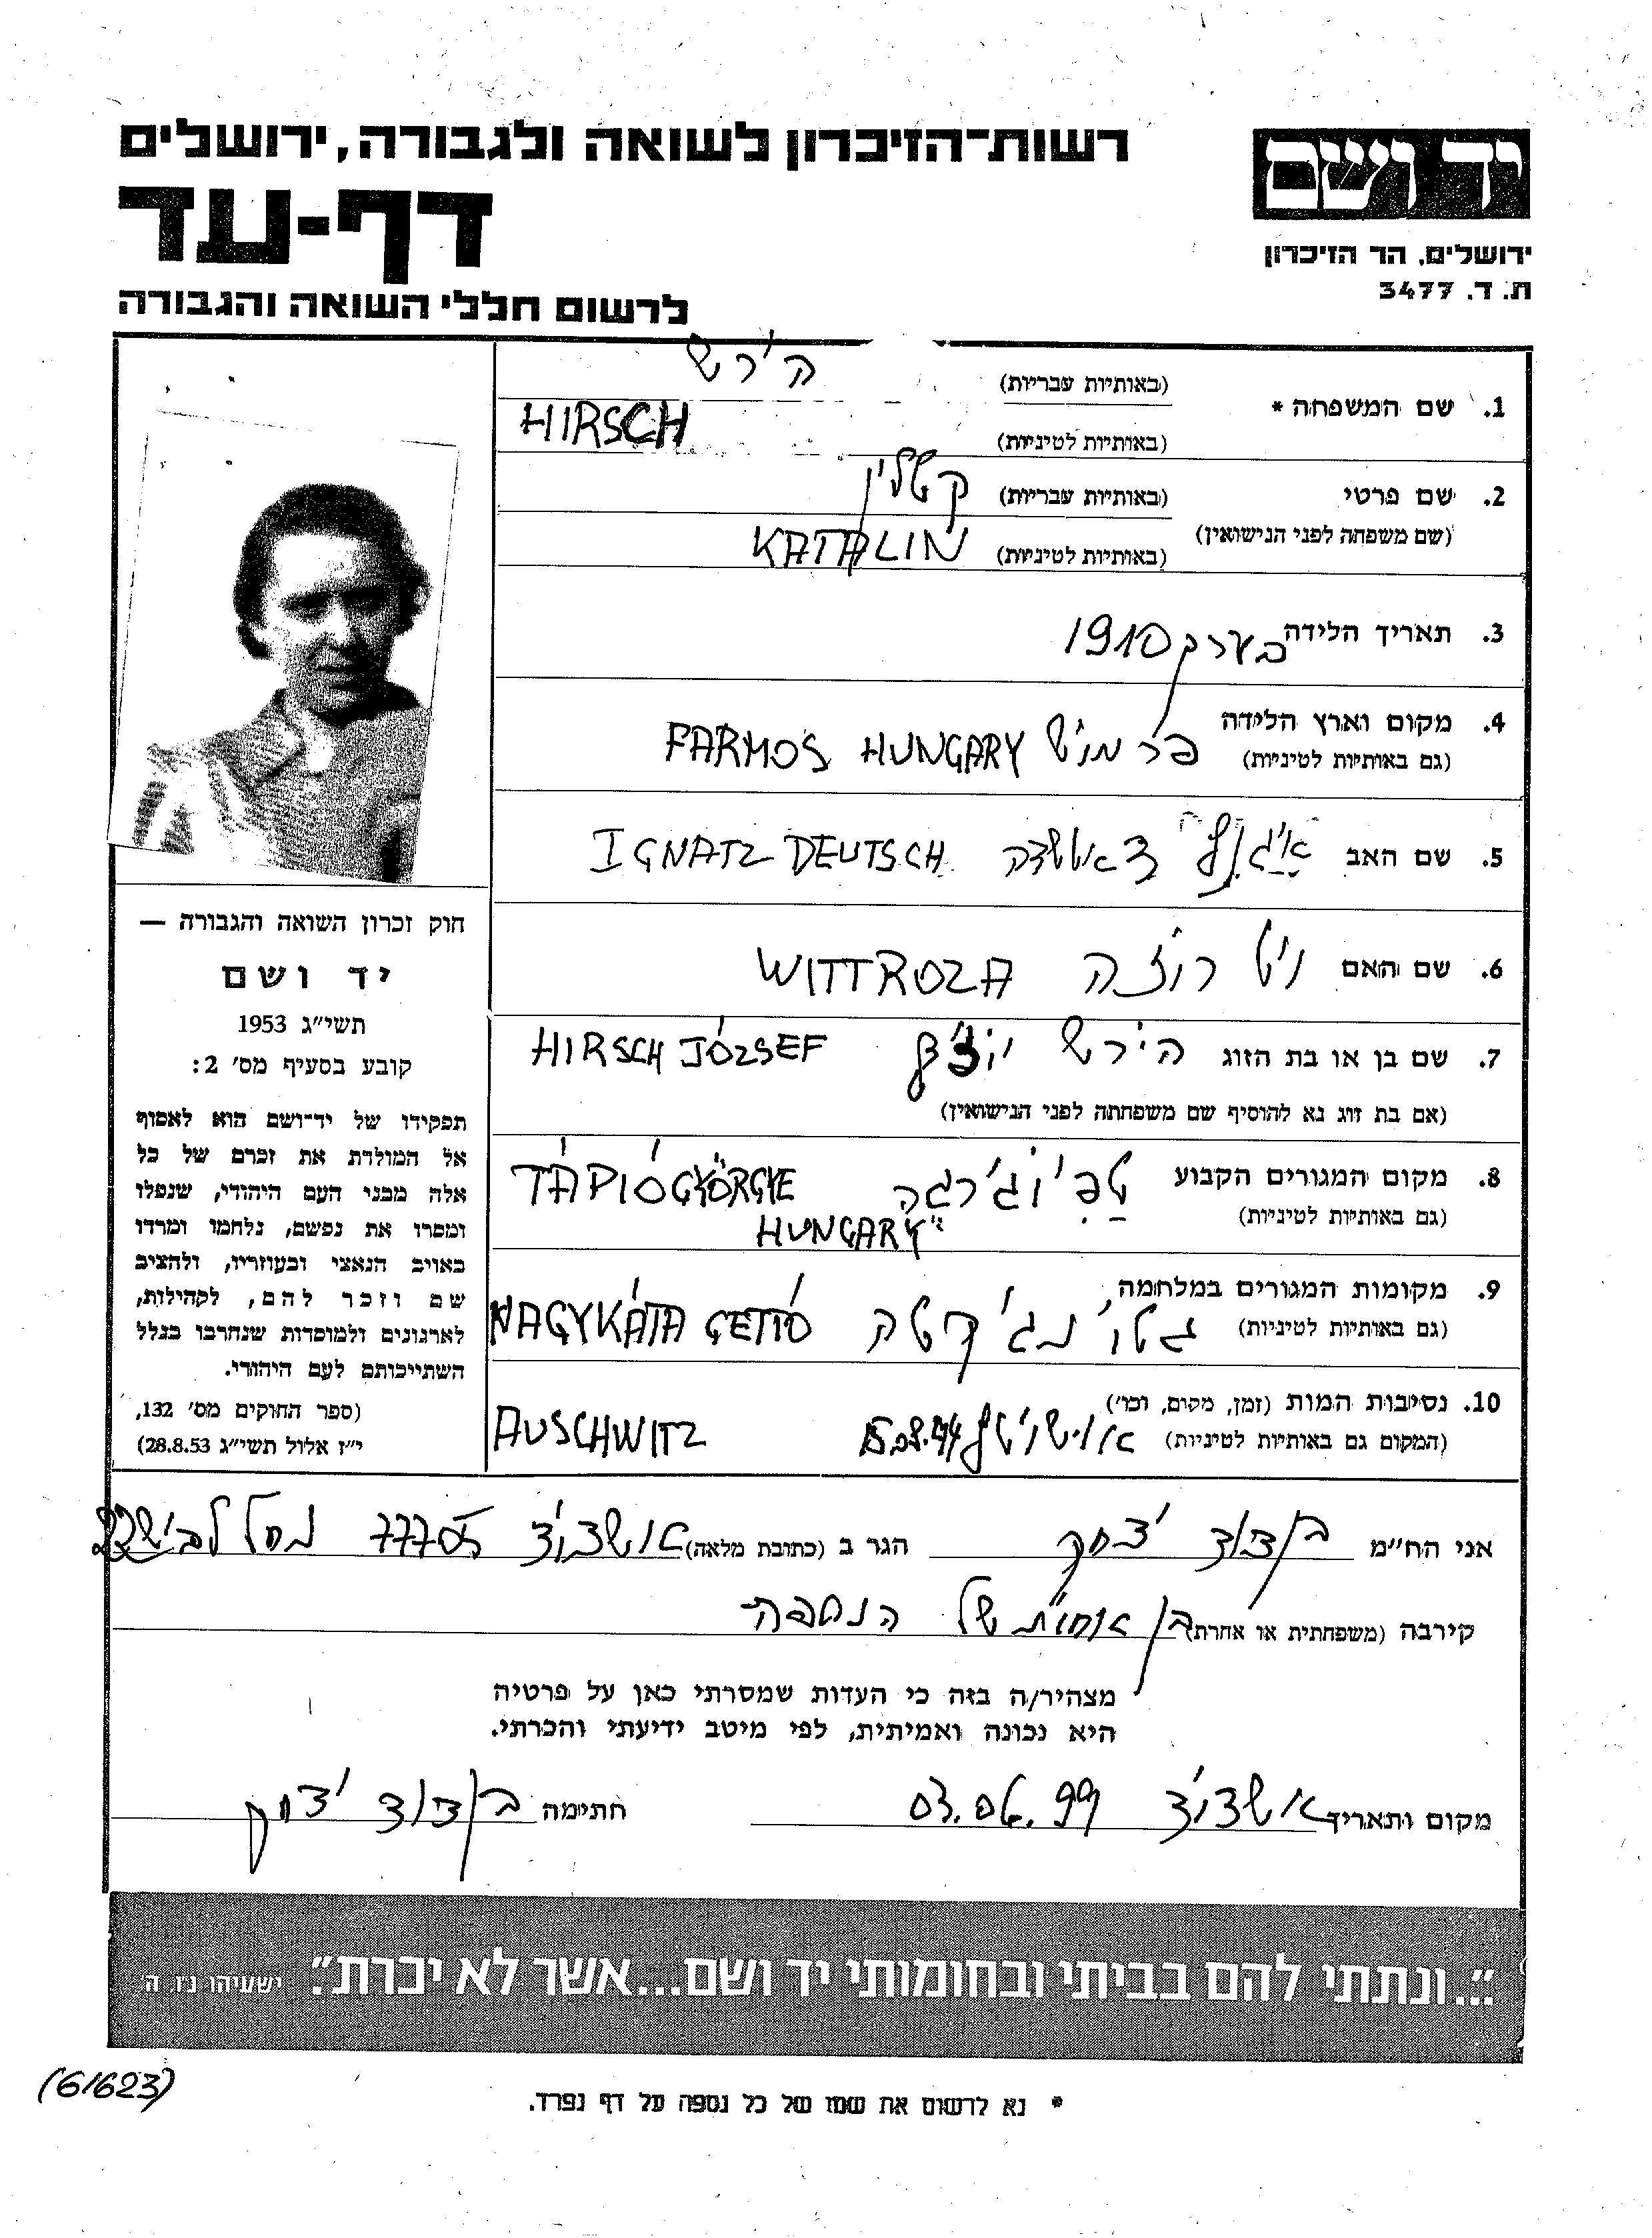 רשות־הזיכרון לשואה ולגבורה, ירושלים
דף-עד
לרשום חללי השואה והגבורה
יד ושם
ירושלים, הר הזיכרון
ת. ד. 3477
1. שם המשפחה * (באותיות עבריות) הירש
(באותיות לטיניות) HIRSCH
2. שם פרטי (באותיות עבריות) קטלין
(שם משפחה לפני הנישואין) (באותיות לטיניות) KATALIN
3. תאריך הלידה בערך 1910
4. מקום וארץ הלידה פרמוש FARMOS HUNGARY
(גם באותיות לטיניות)
5. שם האב איגנץ IGNATZ DEUTSCH
6. שם האם ויט רוזה WITT ROZA
7. שם בן או בת הזוג הירש יוזף HIRSCH JÓZSEF
(אם בת זוג נא להוסיף שם משפחתה לפני הנישואין)
8. מקום המגורים הקבוע טפיוג'רגה TÁPIÓGYÖRGYE
(גם באותיות לטיניות) HUNGARY
9. מקומות המגורים במלחמה
(גם באותיות לטיניות) גטו נג'קטה NAGYKÁTA GETTÓ
10. נסיבות המות (זמן, מקום, וכו')
(המקום גם באותיות לטיניות) אוישויץ 15.08.44 AUSCHWITZ
חוק זכרון השואה והגבורה —
יד ושם
תשי״ג 1953
קובע בסעיף מס' 2:
תפקידו של יד־ושם הוא לאסוף
אל המולדת את זכרם של כל
אלה מבני העם היהודי, שנפלו
ומסרו את נפשם, נלחמו ומרדו
באויב הנאצי ובעוזריו, ולהציב
שם וזכר להם, לקהילות,
לארגונים ולמוסדות שנחרבו בגלל
השתייכותם לעם היהודי.
(ספר החוקים מס' 132,
י״ז אלול תשי״ג 28.8.53)
אני הח״מ בן דוד יצחק הגר ב (כתובת מלאה) אשדוד 77705
קירבה (משפחתית או אחרת) בן אחות של הנספה
מצהיר/ה בזה כי העדות שמסרתי כאן על פרטיה
היא נכונה ואמיתית, לפי מיטב ידיעתי והכרתי.
מקום ותאריך אשדוד 03.06.99 חתימה בן דוד יצחק
"...ונתתי להם בביתי ובחומותי יד ושם...אשר לא יכרת". ישעיהו נו, ה
(61623)
* נא לרשום את שמו של כל נספה על דף נפרד.